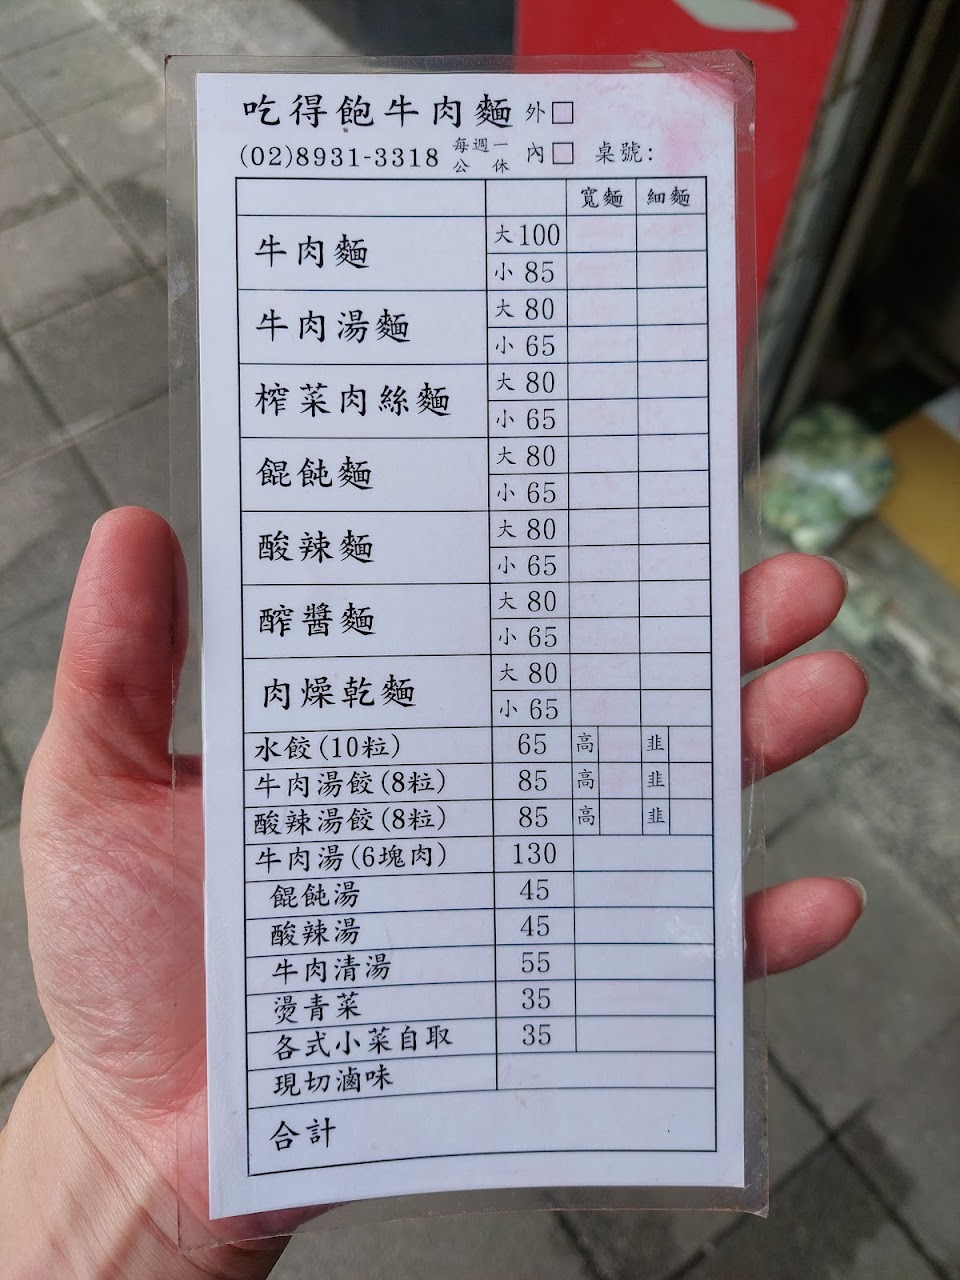 吃得飽牛肉麵 外□
(02)8931-3318 每週一公休 內□ 桌號:
寬麵 細麵
牛肉麵 大100
小 85
牛肉湯麵 大 80
小 65
榨菜肉絲麵 大 80
小 65
餛飩麵 大 80
小 65
酸辣麵 大 80
小 65
醡醬麵 大 80
小 65
肉燥乾麵 大 80
小 65
水餃(10粒) 65 高 韭
牛肉湯餃(8粒) 85 高 韭
酸辣湯餃(8粒) 85 高 韭
牛肉湯(6塊肉) 130
餛飩湯 45
酸辣湯 45
牛肉清湯 55
燙青菜 35
各式小菜自取 35
現切滷味
合計